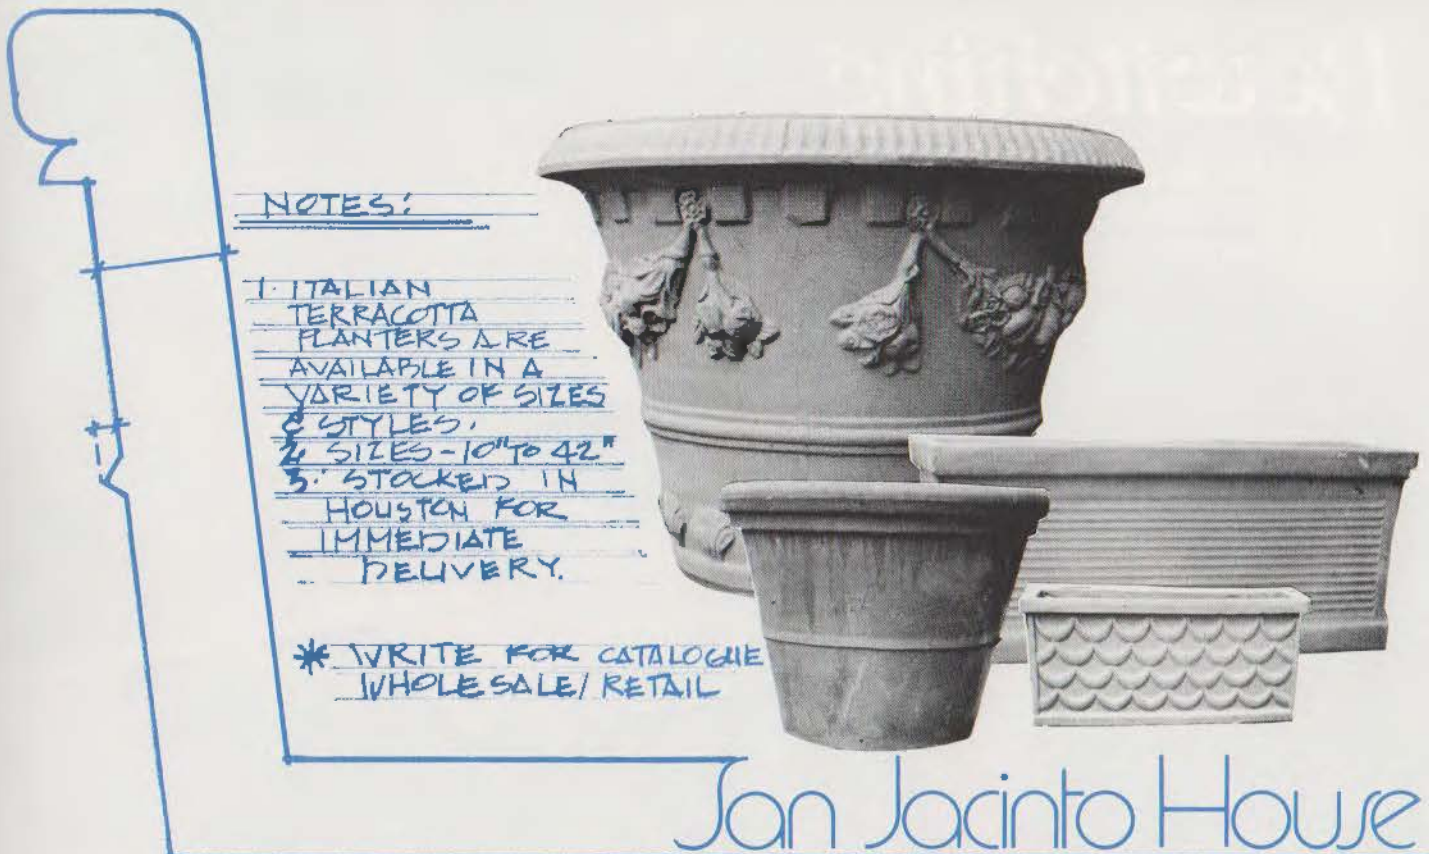 NOTES:
1. ITALIAN
TERRACOTTA
PLANTERS ARE
AVAILABLE IN A
VARIETY OF SIZES
& STYLES.
2. SIZES - 10" TO 42"
3. STOCKED IN
HOUSTON FOR
IMMEDIATE
DELIVERY.
* WRITE FOR CATALOGUE
WHOLESALE / RETAIL
San Jacinto House